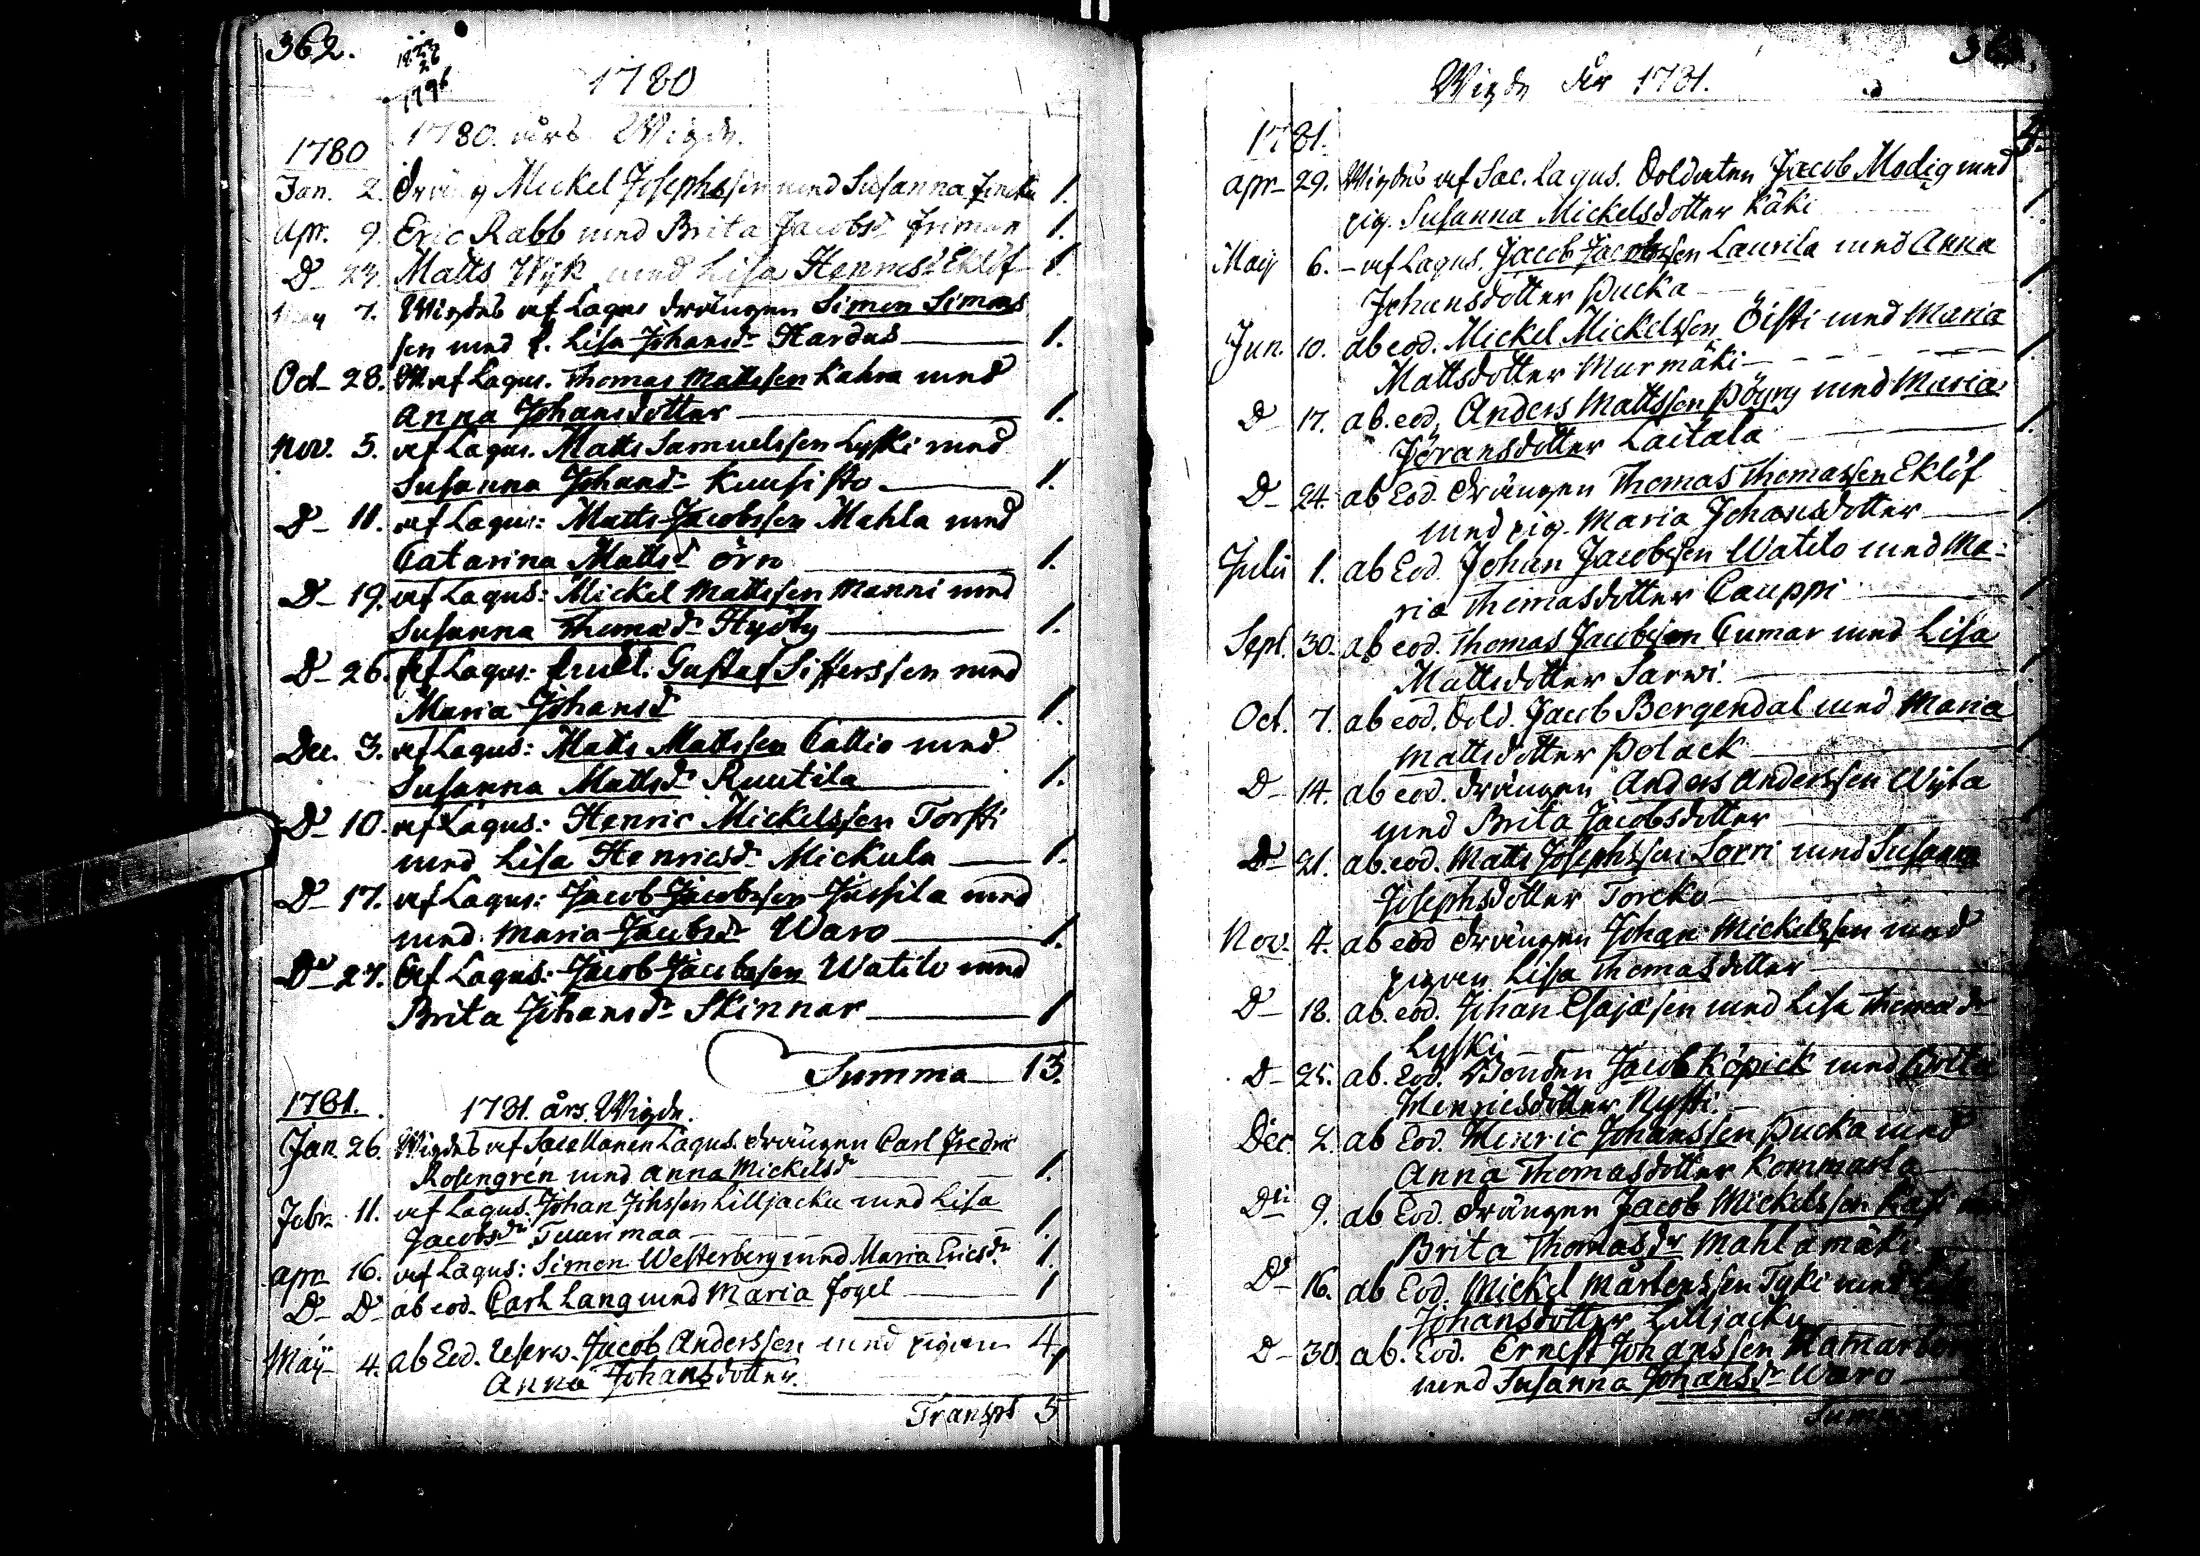 362.
1796
1780
1780. års Wigde.
1780
Jan. 2. Dräng Mickel Josephssen med Susanna 1.
Apr. 9. Eric Rabb med Brita Jacobsd. Friman 1.
D– 23. Matts Wyk med Lisa Henricsd. Eklöf 1.
May 7. Wigdes af Lagus drängen Simon Simons
sen med p. Lisa Johansd. Hardus 1.
Oct– 28. W. af Lagus. Thomas Mattssen Kahra med
Anna Johansdotter 1.
Nov. 5. af Lagus. Matts Samuelssen Lyski med
Susanna Johansd. Kuusisto 1.
D– 11. af Lagus: Matts Jacobssen Mahla med
Catarina Mattsd. Örn 1.
D– 19. af Lagus: Mickel Mattssen Manni med
Susanna Thomasd. Hyöty 1.
D– 26. af Lagus: Gustaf Siffersssen med
Maria Johansd. 1.
Dec. 3. af Lagus: Matts Mattssen Callio med
Susanna Mattsd. Ruutila 1.
D– 10. af Lagus: Henric Mickelssen Torsti
med Lisa Henricsd. Mickula 1.
D– 17. af Lagus: Jacob Jacobssen Jussila med
med Maria Jacobsd. Waro 1.
D– 27. Af Lagus: Jacob Jacobssen Watilo med
Brita Johansd. Skinnar 1
Summa 13.
1781. 1781. års Wigde.
Jan 26. Wigdes af Sacellanen Lagus drängen Carl Fredric
Rosengrén med Anna Mickelsd. 1.
Febr. 11. af Lagus. Johan Johssen Lilljacku med Lisa
Jacobsdr Tuurimaa 1.
Apr 16. af Lagus: Simon Westerberg med Maria Ericsdr 1.
D– D– ab eod. Carl Lang med Maria Fogel 1
4
Maÿ 4. ab Eod. Reserv. Jacob Anderssen med pigan
Anna Johansdotter. 1
Transpt 5
Wigde År 1781.
1781.
Apr– 29. Wigdes af Sac. Lagus. Soldaten Jacob Modig med
pig. Susanna Mickelsdotter Käki 1
Maij 6. – af Lagus. Jacob Jacobssen Laurila med Anna
Johansdotter Pucka 1.
Jun. 10. ab eod. Mickel Mickelssen Öisti med Maria
Mattsdotter Murmäki 1
D– 17. ab. eod. Anders Mattssen Pöyry med Maria
Jöransdotter Laitala 1.
D– 24. ab Eod. drängen Thomas Thomassen Eklöf
med pig. Maria Johansdotter 1
Julii 1. ab Eod. Johan Jacobssen Watilo med Ma-
ria Thomasdotter Cauppi 1
Sept. 30. ab eod. Thomas Jacobssen Cumar med Lisa
Mattsdotter Sarwi 1
Oct. 7. ab eod. Sold. Jacob Bergendal med Maria
Mattsdotter Polack 1
D– 14. ab eod. drängen Anders Anderssen Wyta
med Brita Jacobsdotter
D– 21. ab. eod. Matts Josephssen Sorri med Susanna
Josephsdotter Torcko
Nov. 4. ab eod drängen Johan Mickelssen med
pigan Lisa Thomasdotter
D– 18. ab. eod. Johan Esajasen med Lisa Thomasdr
Lyski
D– 25. ab. Eod. Bonden Jacob Köpick med Brita
Henricsdotter Rysti.
Dec. 2. ab Eod. Henric Johanssen Pucka med
Anna Thomasdotter Kommarla
Dn 9. ab Eod. drängen Jacob Mickelssen
Brita Thomasdr Mahlamäki
D– 16. ab Eod. Mickel Mårtenssen Tyki med
Johansdotter Lilljacku
D– 30. ab. Eod. Ernest Johanssen
med Susanna Johansdr Waro
Summa